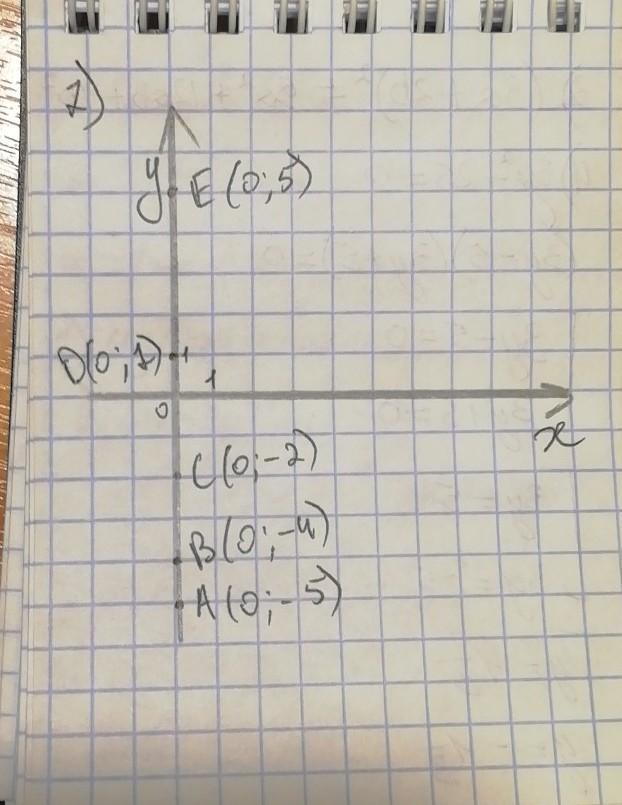 1)
y E (0; 5)
D(0; 1) 1
1
0
x
C (0; -2)
B (0; -4)
A (0; -5)